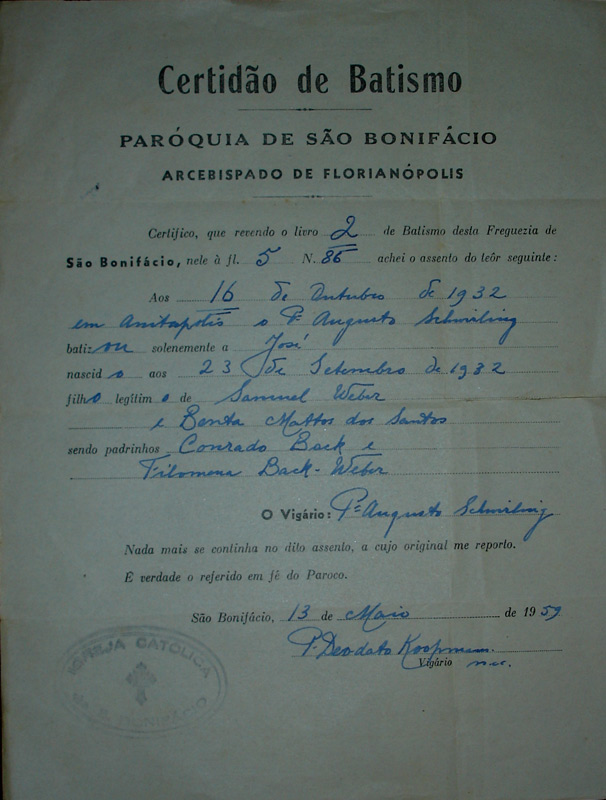 Certidão de Batismo
PARÓQUIA DE SÃO BONIFÁCIO
ARCEBISPADO DE FLORIANÓPOLIS
Certifico, que revendo o livro 2 de Batismo desta Freguezia de
São Bonifácio, nele à fl. 5 N. 86 achei o assento do teôr seguinte:
Aos 16 de Outubro de 1932
em Anitapolis o Pe Augusto Schwirling
batizou solenemente a José
nascido aos 23 de Setembro de 1932
filho legítimo de Samuel Weber
e Benta Mattos dos Santos
sendo padrinhos Conrado Back e
Filomena Back-Weber
O Vigário: Pe Augusto Schwirling
Nada mais se continha no dito assento, a cujo original me reporto.
É verdade o referido em fé do Paroco.
São Bonifácio, 13 de Maio de 1959
P. Deodato Koopmann
Vigário
IGREJA CATOLICA
S. BONIFACIO